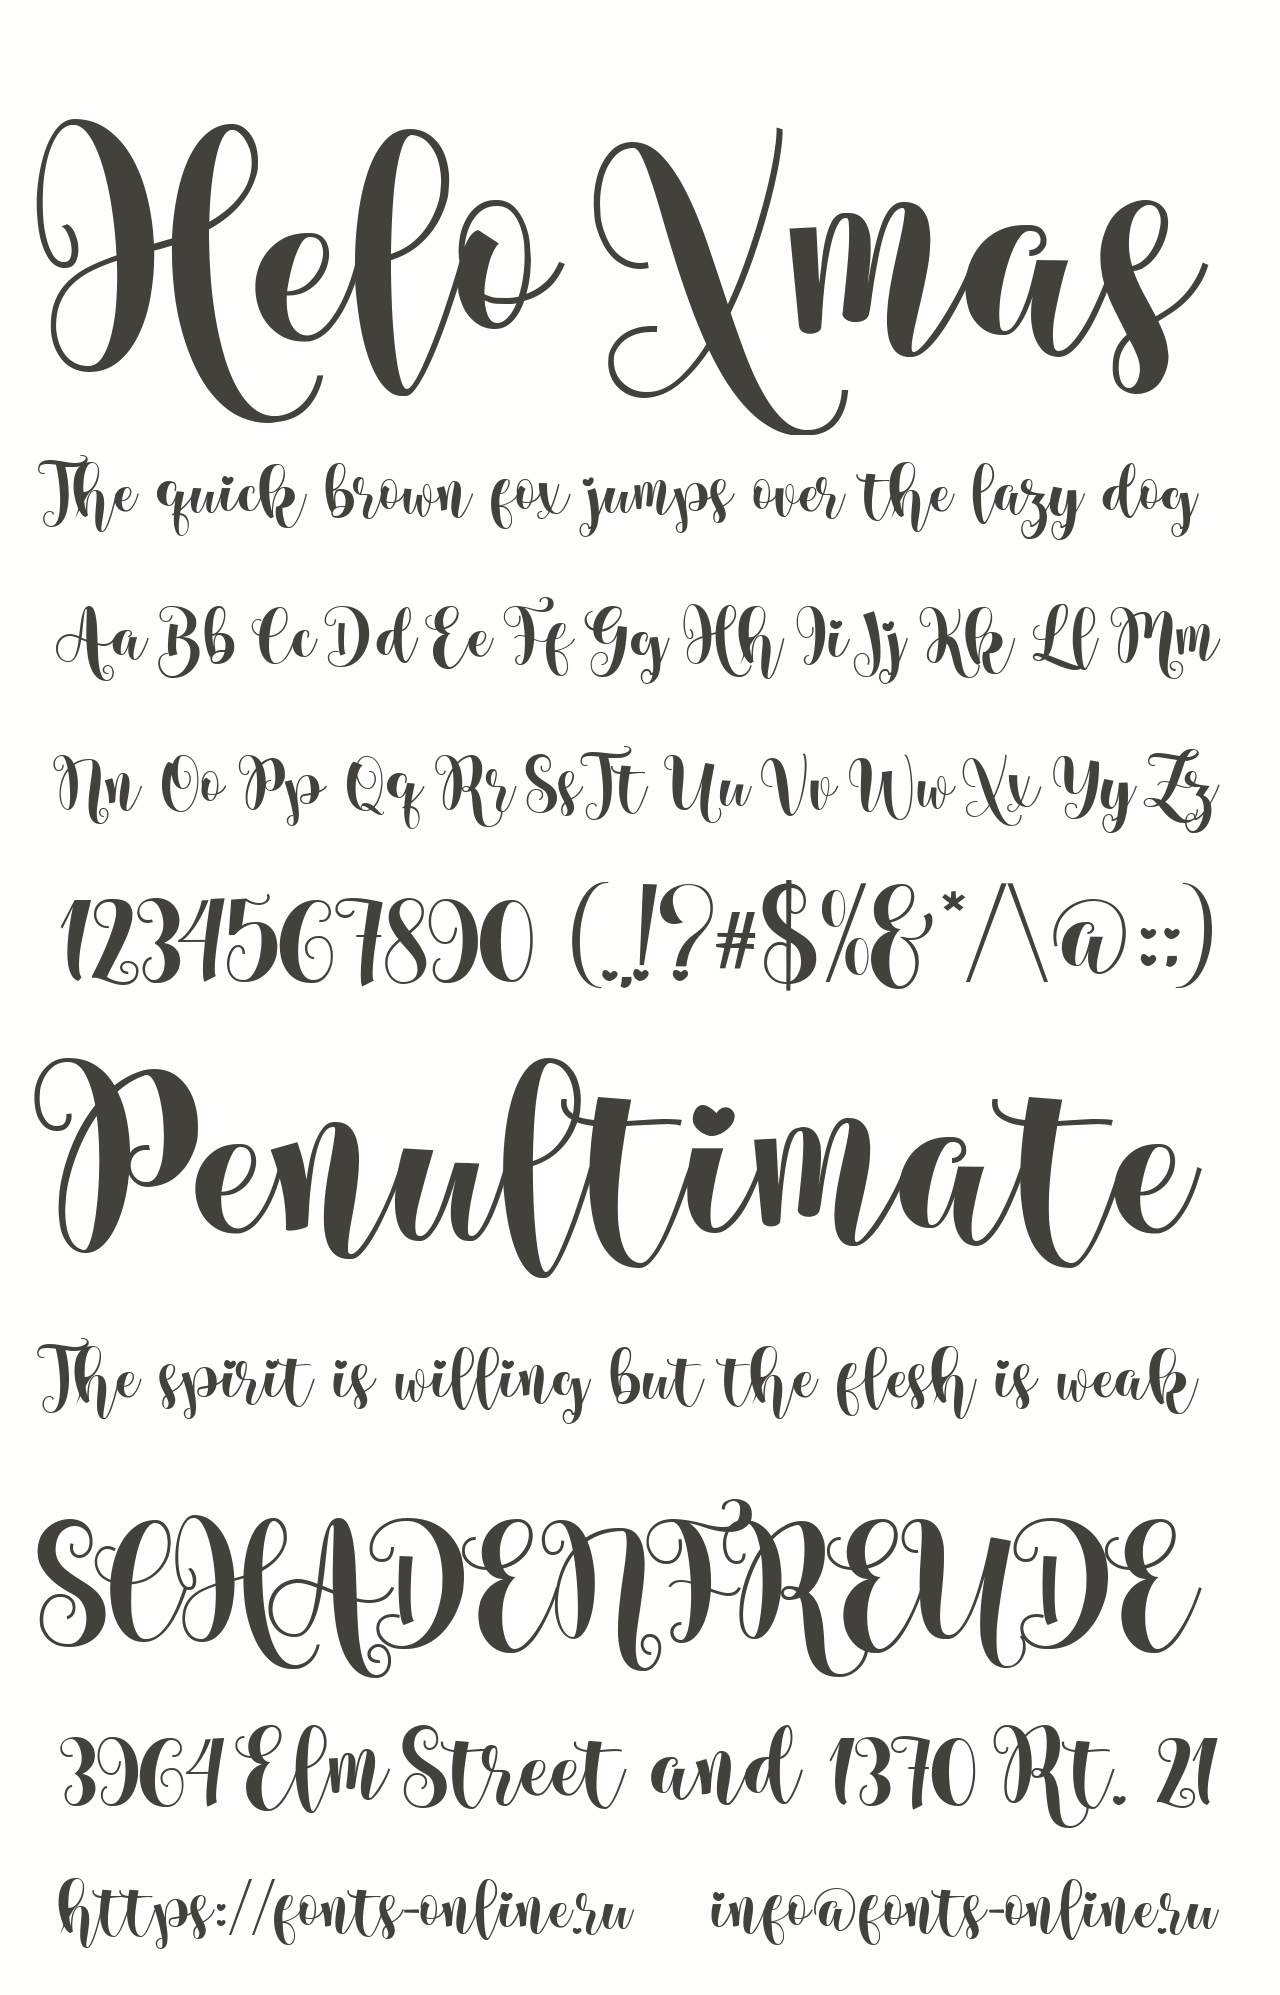 Helo Xmas
The quick brown fox jumps over the lazy dog
Aa Bb Cc Dd Ee Ff Gg Hh Ii Jj Kk Ll Mm
Nn Oo Pp Qq Rr Ss Tt Uu Vv Ww Xx Yy Zz
1234567890 (.,!?#$%&*/\@:;)
Penultimate
The spirit is willing but the flesh is weak
SCHADENFREUDE
3964 Elm Street and 1370 Rt. 21
https://fonts-online.ru info@fonts-online.ru